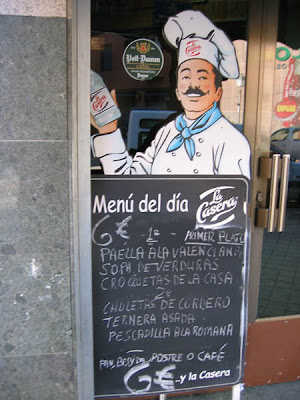 La Casera
Voll-Damm
La Casera
Menú del día
La Casera
6€
-1º- PRIMER PLATO
PAELLA A LA VALENCIANA
SOPA DE VERDURAS
CROQUETAS DE LA CASA
2º
CHULETAS DE CORDERO
TERNERA ASADA
PESCADILLA A LA ROMANA
PAN, BEBIDA, POSTRE O CAFÉ
6€ ..y la Casera